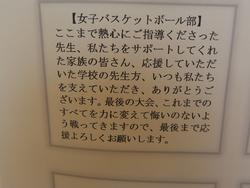 【女子バスケットボール部】
ここまで熱心にご指導くださった
先生、私たちをサポートしてくれ
た家族の皆さん、応援していただ
いた学校の先生方、いつも私たち
を支えていただき、ありがとうご
ざいます。最後の大会、これまでの
すべてを力に変えて悔いのないよ
う戦ってきますので、最後まで応
援よろしくお願いします。